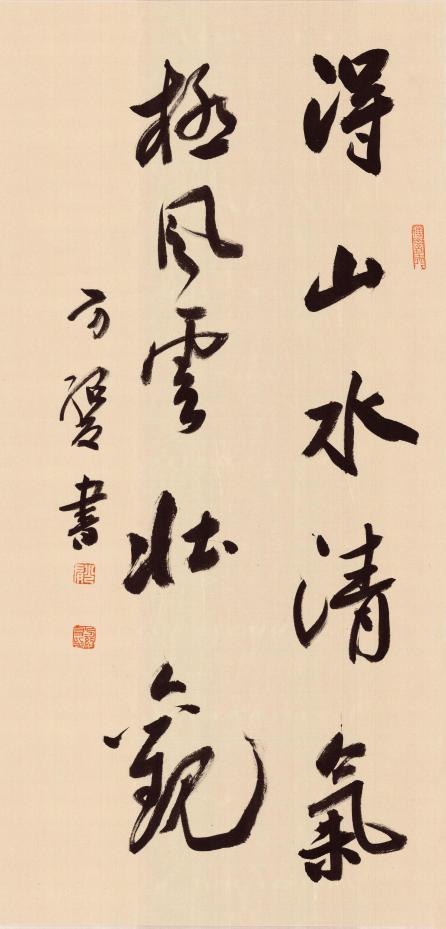 得山水清氣
極風雲壯觀
書